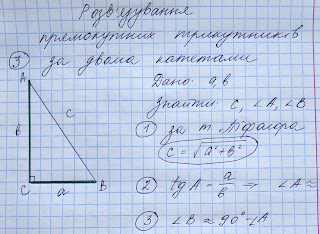 Розв'язування
прямокутних трикутників
③ за двома катетами
Дано: a, b
Знайти: c, ∠A, ∠B
① за т. Піфагора
c = √a²+b²
② tg A = a/b ⇒ ∠A ≈
③ ∠B ≈ 90° - ∠A
A
b
c
C
a
B